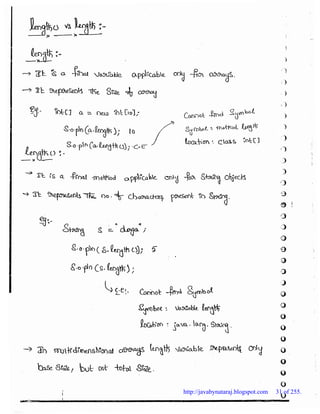 Length() vs Length :-
Length :-
→ It is a final variable applicable only for arrays.
→ It represents the size of array
Eg. int[] a = new int[10];
S.o.pln(a.length); 10
S.o.pln(a.length()); C.E
Cannot find Symbol
Symbol : method length
location : class int[]
Length() :-
→ It is a final method applicable only for String objects
→ It represents the no. of characters present in String.
Eg:-
String s = "durga";
S.o.pln(s.length()); 5
S.o.pln(s.length);
C.E:- Cannot find Symbol
Symbol : variable length
location : java.lang.String
→ In multidimensional arrays length variable represents only
base size, but not total size.
http://javabynataraj.blogspot.com 31 of 255.